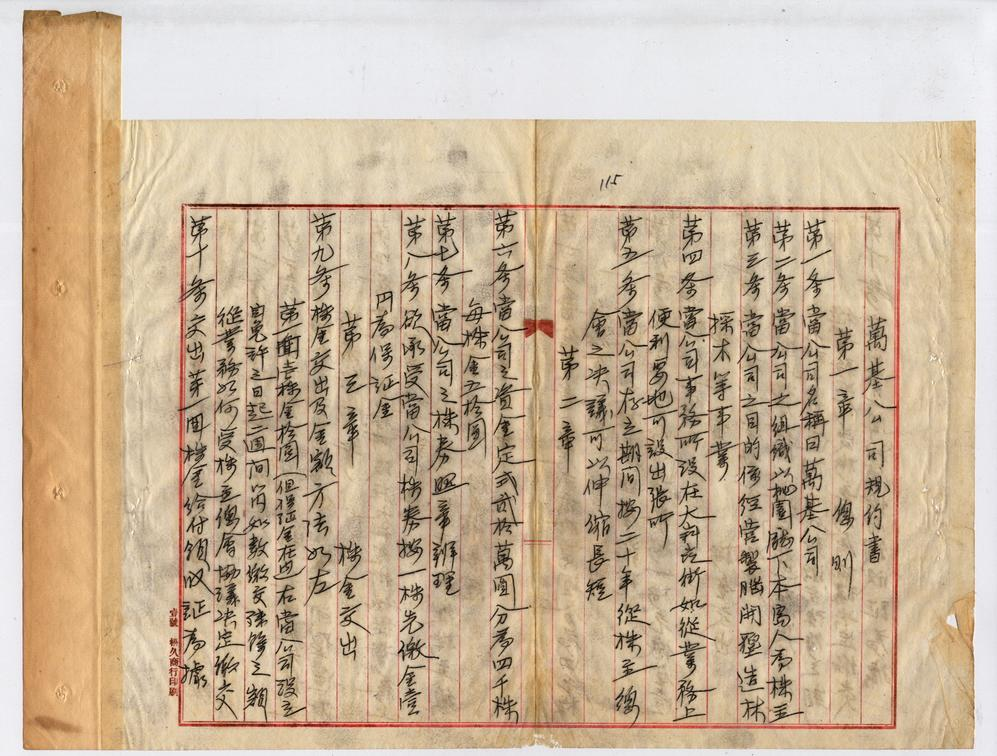 115
萬基公司規約書
第一章 總則
第一条 當公司名稱曰萬基公司
第二条 當公司之組織以桃園廳下本島人為株主
第三条 當公司之目的係經營製腦開墾造林
採木等事業
第四条 當公司事務所設在大料崁街如從業務上
便利要地可設出張所
第五条 當公司存立期间按二十年從株主總
會之決議可以伸縮長短
第二章
第六条 當公司之資金定式貳拾萬圓分為四千株
每株金五拾圓
第七条 當公司之株券照章辦理
第八条 欲承受當公司株券按一株先繳金壹
円為保証金
第三章 株金交出
第九条 株金交出及金額方法如左
第一囬壱株金拾圓(但保証金在內)右當公司設立
自免許之日起二週間以內如數繳交殘餘之額
從業務如何受株主總會協議決定繳交
第十条 交出第一囬株金給付領收証為據
壹號 林久商行印刷